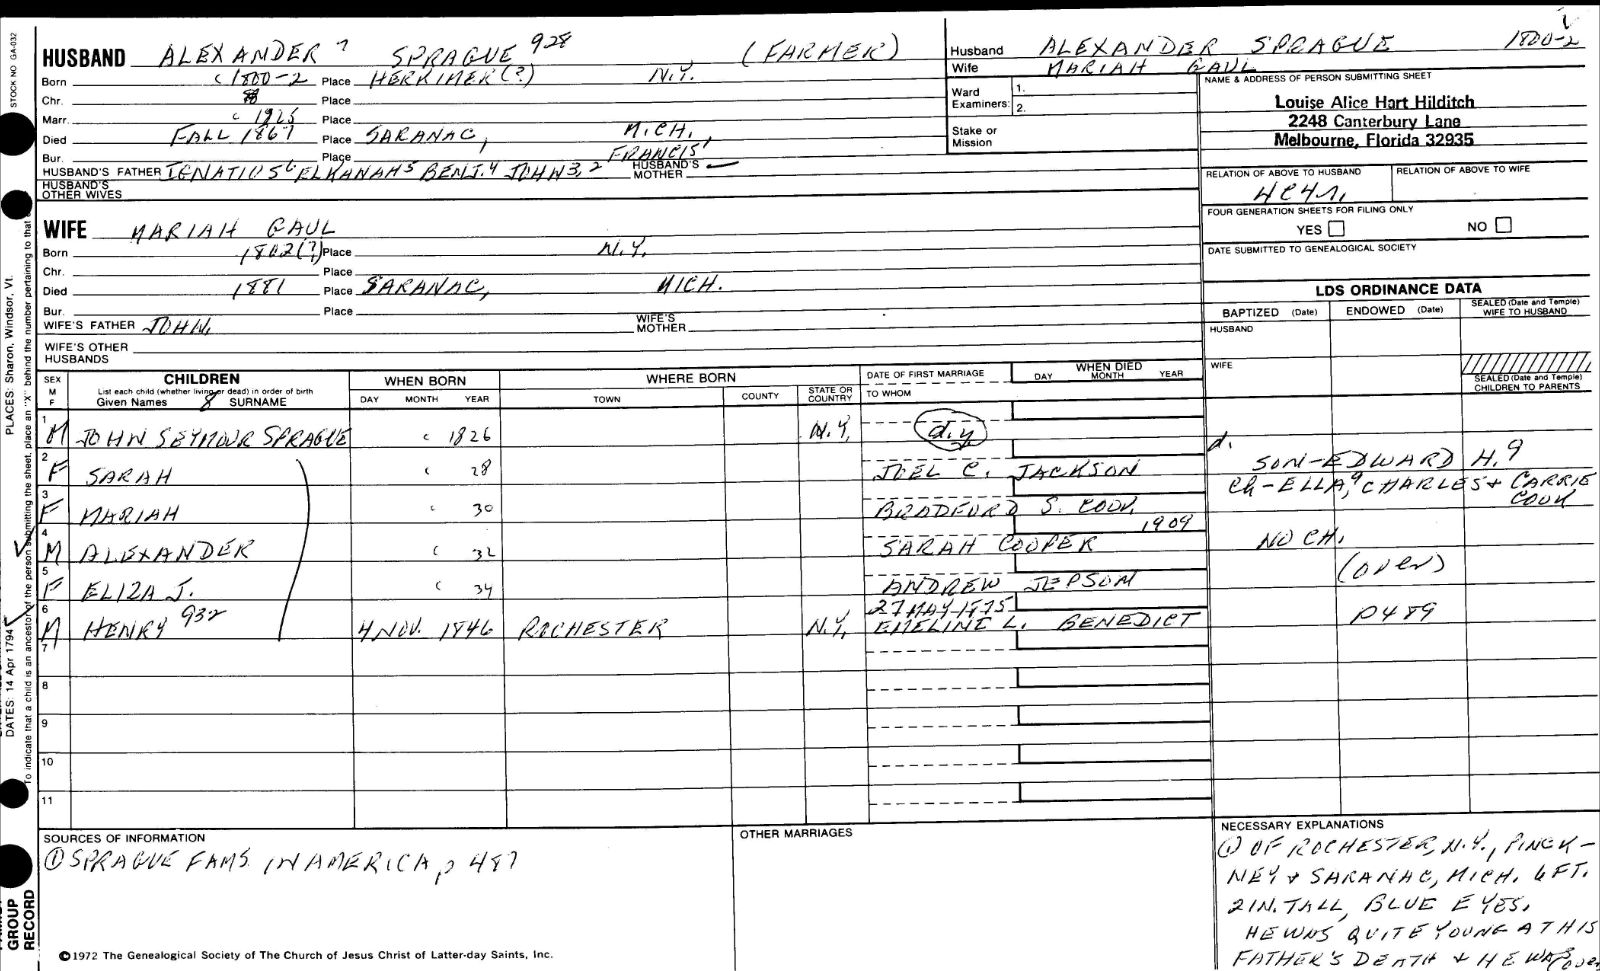 STOCK NO GA-032
HUSBAND ALEXANDER 7 SPRAGUE 928 (FARMER)
Born c 1800-2 Place HERKIMER(?) N.Y.
Chr. Place
Marr. c 1925 Place
Died FALL 1867 Place SARANAC, MICH,
Bur. Place FRANCIS1
HUSBAND'S FATHER IGNATIUS6 ELKANAH5 BENJ.4 JOHN3,2 HUSBAND'S MOTHER
HUSBAND'S OTHER WIVES
WIFE MARIAH GAUL
Born 1802(?) Place N.Y.
Chr. Place
Died 1881 Place SARANAC, MICH.
Bur. Place
WIFE'S FATHER JOHN. WIFE'S MOTHER
WIFE'S OTHER HUSBANDS
Husband ALEXANDER SPRAGUE 1800-2
Wife MARIAH GAUL
Ward Examiners: 1. 2.
Stake or Mission
NAME & ADDRESS OF PERSON SUBMITTING SHEET
Louise Alice Hart Hilditch
2248 Canterbury Lane
Melbourne, Florida 32935
RELATION OF ABOVE TO HUSBAND RELATION OF ABOVE TO WIFE
4C4r.
FOUR GENERATION SHEETS FOR FILING ONLY
YES NO
DATE SUBMITTED TO GENEALOGICAL SOCIETY
LDS ORDINANCE DATA
BAPTIZED (Date) ENDOWED (Date) SEALED (Date and Temple) WIFE TO HUSBAND
HUSBAND
WIFE
SEALED (Date and Temple) CHILDREN TO PARENTS
SEX M F
CHILDREN
List each child (whether living or dead) in order of birth
Given Names 8 SURNAME
WHEN BORN
DAY MONTH YEAR
WHERE BORN
TOWN COUNTY STATE OR COUNTRY
DATE OF FIRST MARRIAGE
TO WHOM
WHEN DIED
DAY MONTH YEAR
1 M JOHN SEYMOUR SPRAGUE c 1826 N.Y. d.y. d.
2 F SARAH c 28 JOEL C. JACKSON SON-EDWARD H.9
3 F MARIAH c 30 BRADFORD S. COOK, Ch-ELLA,9 CHARLES + CARRIE COOK
4 M ALEXANDER c 32 SARAH COOPER 1909 NO CH.
5 F ELIZA J. c 34 ANDREW JEPSOM (over)
6 M HENRY 932 4 NOV. 1846 ROCHESTER N.Y, 27 MAY 1875 EMELINE L. BENEDICT p489
7
8
9
10
11
SOURCES OF INFORMATION
① SPRAGUE FAMS. IN AMERICA, p 487
OTHER MARRIAGES
NECESSARY EXPLANATIONS
① OF ROCHESTER, N.Y., PINCK-
NEY + SARANAC, MICH. 6 FT.
2 IN. TALL, BLUE EYES.
HE WAS QUITE YOUNG AT HIS
FATHER'S DEATH + HE WAS (over
©1972 The Genealogical Society of The Church of Jesus Christ of Latter-day Saints, Inc.
GROUP
RECORD
DATES: 14 Apr 1794
PLACES: Sharon, Windsor, Vt.
To indicate that a child is an ancestor of the person submitting the sheet, place an "X" behind the number pertaining to that